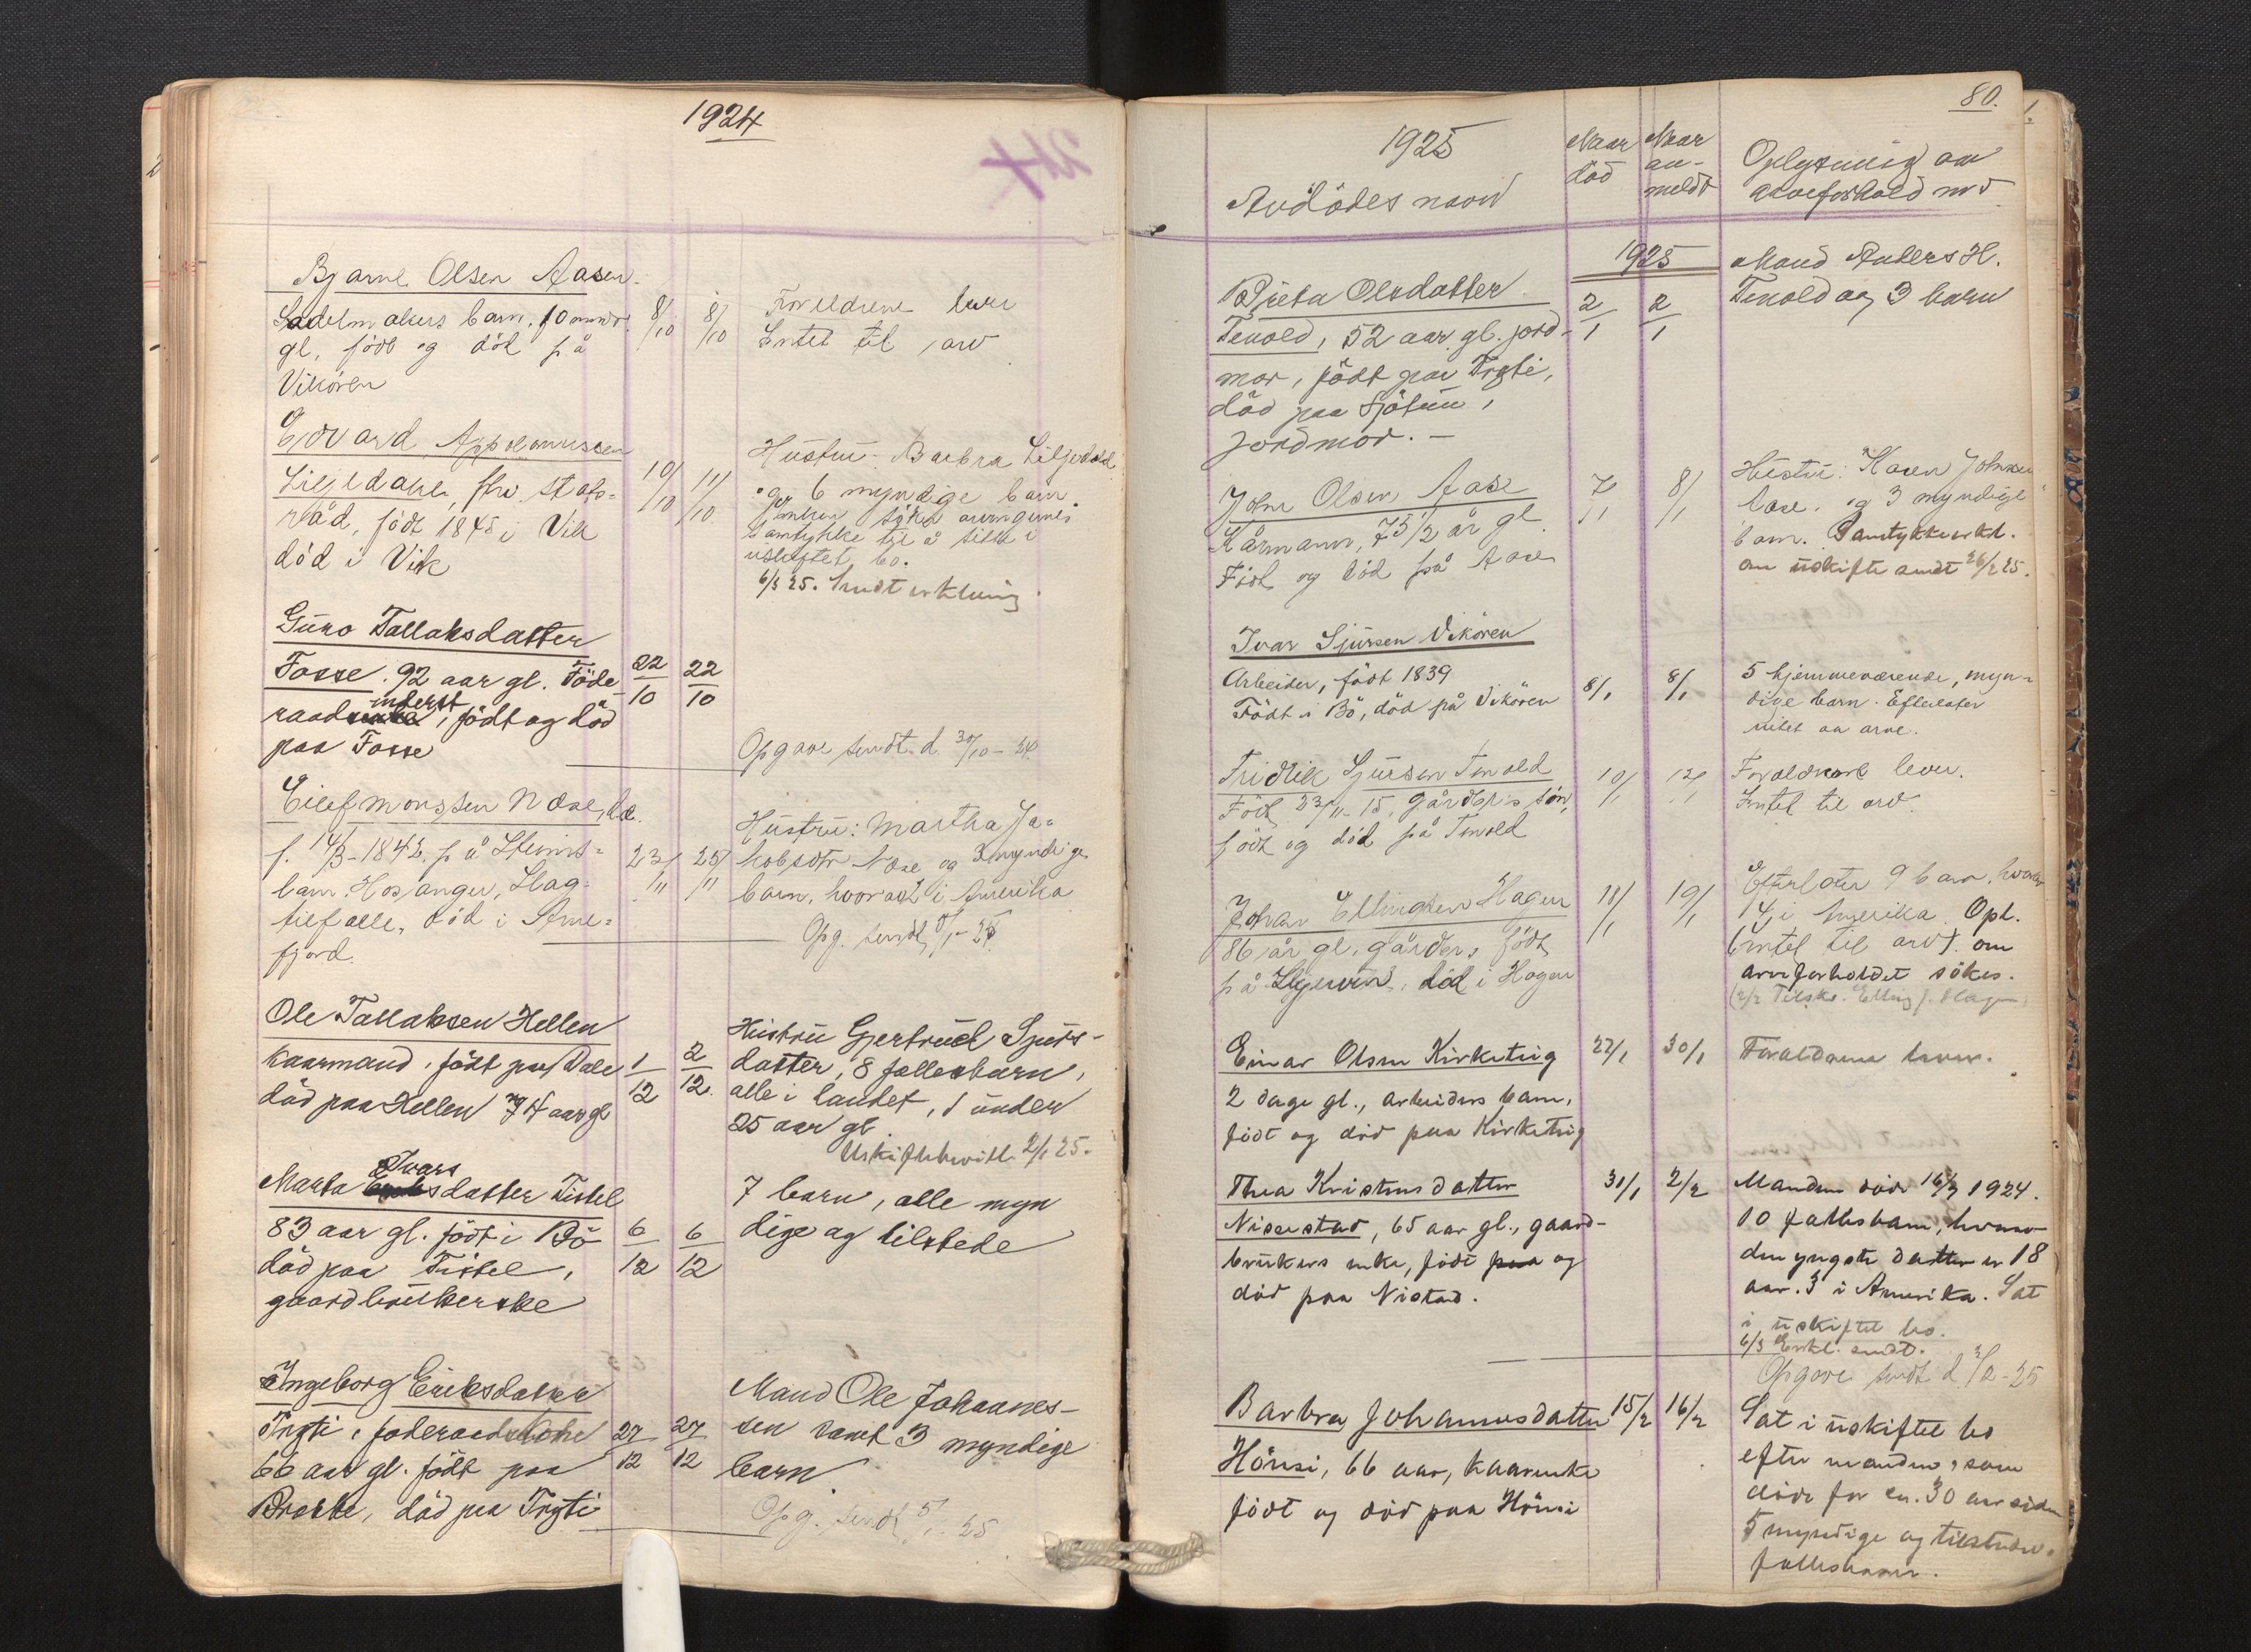 1924
24
Bjarne Olsen Aasen.
Sadelmakers barn, 10 mndr.
gl., född og död på
Vikören
8/10
8/10
Foreldrene lever
Intet til arv
Edvard Appolonussen
Liljedahl, fhv. stats-
råd, född 1845 i Vik
död i Vik
10/10
11/10
Hustru: Barbra Liljedahl
og 6 myndige barn.
samtykke til å sitte i
uskiftet bo.
6/3 25. Sendt erklæring.
Guro Tallaksdatter
Fosse. 92 aar gl. Föde-
raads inderst, födt og död
paa Fosse
22/10
22/10
Opgave sendt d. 30/10 - 24
Eilef Monssen Nese,
f. 14/3 - 1842 på Steins-
barn. Hosanger, Slag-
tilfælle, död i Arne-
fjord.
23/11
25/11
Hustru: Martha Ja-
kobsdtr Nese og 3 myndige
barn, hvorav 1 i Amerika
Opg. sendt 5/1 - 25
Ole Tallaksen Hellen
Kaarmand, födt paa Dale
död paa Hellen 74 aar gl
1/12
2/12.
Hustru Gjertrud Sjurs-
datter, 8 fællesbarn,
alle i landet, 1 under
25 aar gl.
Uskiftebevill. 2/1 25.
Marta Ivarsdatter Tistel
83 aar gl. födt i Bö
död paa Tistel,
gaardbrukerske
6/12
6/12
7 barn, alle myn
dige og tilstede
Ingeborg Eriksdatter
Trygti, foderaadskone
66 aar gl. födt paa
Brekke, död paa Trygti
27/12
27/12
Mand Ole Johannes-
sen samt 3 myndige
barn
Opg. sendt 5/1 - 25
80.
1925
Avdödes navn
Naar
död
Naar
an-
meldt
Oplysning om
arveforhold m v
1925
Brita Olsdatter
Tenold, 52 aar gl. jord-
mor, födt paa Trygti,
död paa Sjötun,
Jordmor. -
2/1
2/1
Mand Anders H.
Tenold og 3 barn
John Olsen Aase
Kårmann, 75 1/2 år gl.
Född og död på Aase
7/1
8/1
Hustru: Karen Johnsen
Aase. og 3 myndige
barn. Samtykkeerkl.
om uskifte sendt 26/2 25.
Ivar Sjursen Vikören
Arbeider, födt 1839
Födt i Bö, död på Vikören
8/1
8/1
5 hjemmeværende, myn-
dige barn. Efterlater
intet av arve.
Fridtik Sjursen Tenold
Född 23/11 - 15, gårdbr.s sön,
född og död på Tenold
10/1
12/1
Foreldrene lever.
Intet til arv.
Johan Ellingsen Hagen
86 år gl. gårdbr, född
på Skjervin, död i Hagen
18/1
19/1
Efterlater 9 barn, hvorav
4 i Amerika. Opl.
(intet til arv). om
arveforholdet sökes.
(2/2 Tilskr. Elling J. Hagen)
Einar Olsen Kirketeig
2 dage gl., arbeiders barn,
födt og död paa Kirketeig
27/1
30/1
Forældrene lever.
Thea Kristensdatter
Nisestad, 65 aar gl., gaard-
brukers enke, födt paa og
död paa Nistad.
31/1
2/2
Manden död 16/3 1924.
10 fællesbarn, hvorav
den yngste datter er 18
aar. 3 i Amerika. Sat
i uskiftet bo.
6/3 Erkl. sendt.
Opgave sendt d. 3/2 - 25
Barbra Johannesdatter
Hönsi, 66 aar, kaarenke
födt og död paa Hönsi
15/2
16/2
Sat i uskiftet bo
efter manden, som
döde for ca. 30 aar siden
5 myndige og tilstedev.
fællesbarn.